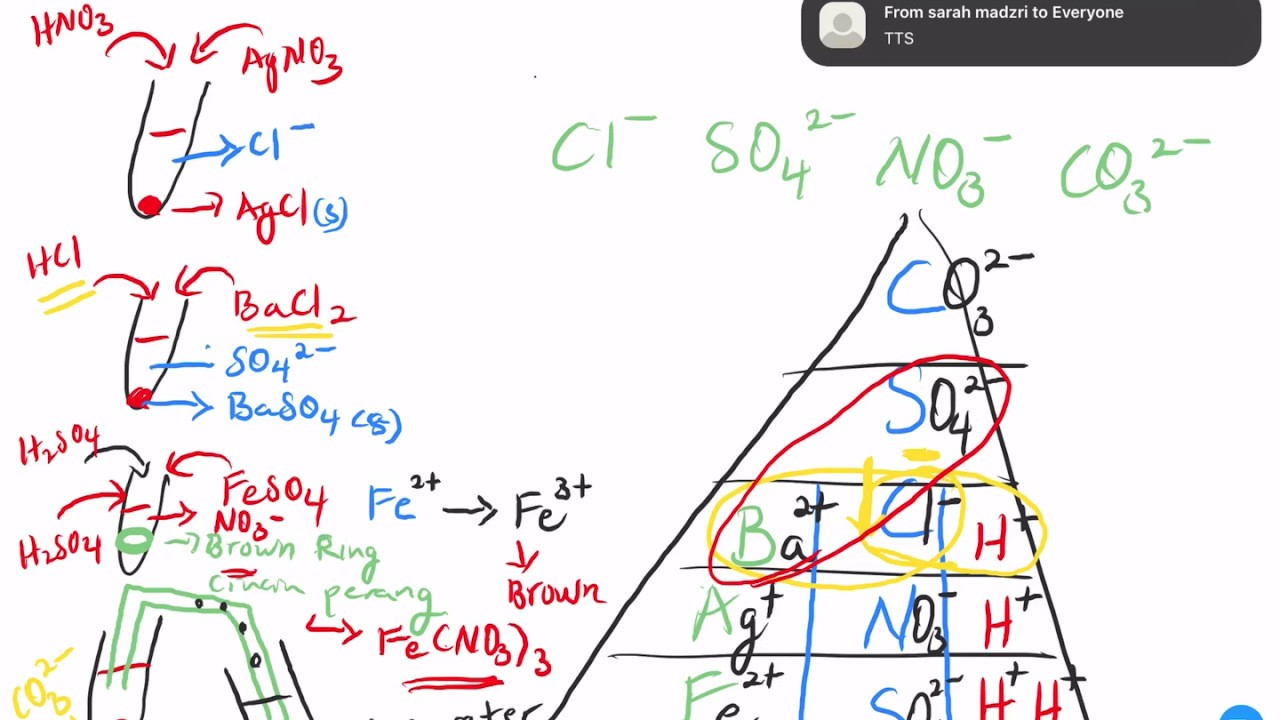 From sarah madzri to Everyone
TTS
HNO3
AgNO3
Cl⁻
AgCl(s)
HCl
BaCl2
SO4²⁻
BaSO4 (s)
H2SO4
FeSO4
NO3⁻
H2SO4
Brown Ring
cincin perang
Fe²⁺ → Fe³⁺
Brown
Fe(NO3)3
CO3²⁻
Cl⁻ SO4²⁻ NO3⁻ CO3²⁻
CO3²⁻
SO4²⁻
Ba²⁺ Cl⁻ H⁺
Ag⁺ NO3⁻ H⁺
Fe²⁺ SO4²⁻ H⁺ H⁺